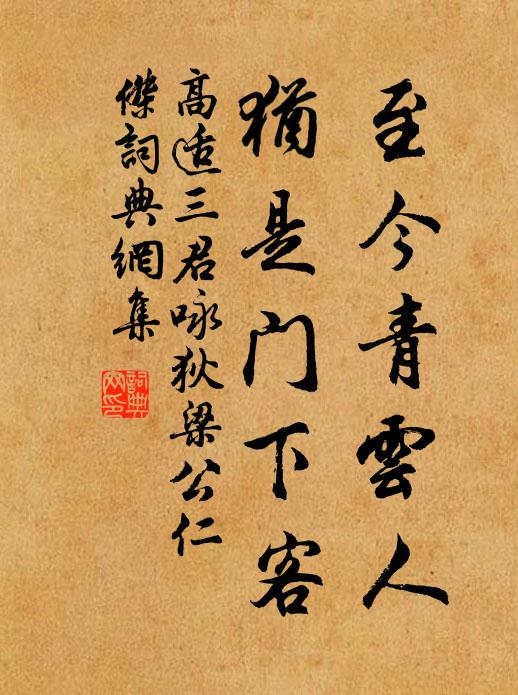 至今青雲人
猶是門下客
高适三君咏狄梁公仁
傑詞典網集
詞典
网印